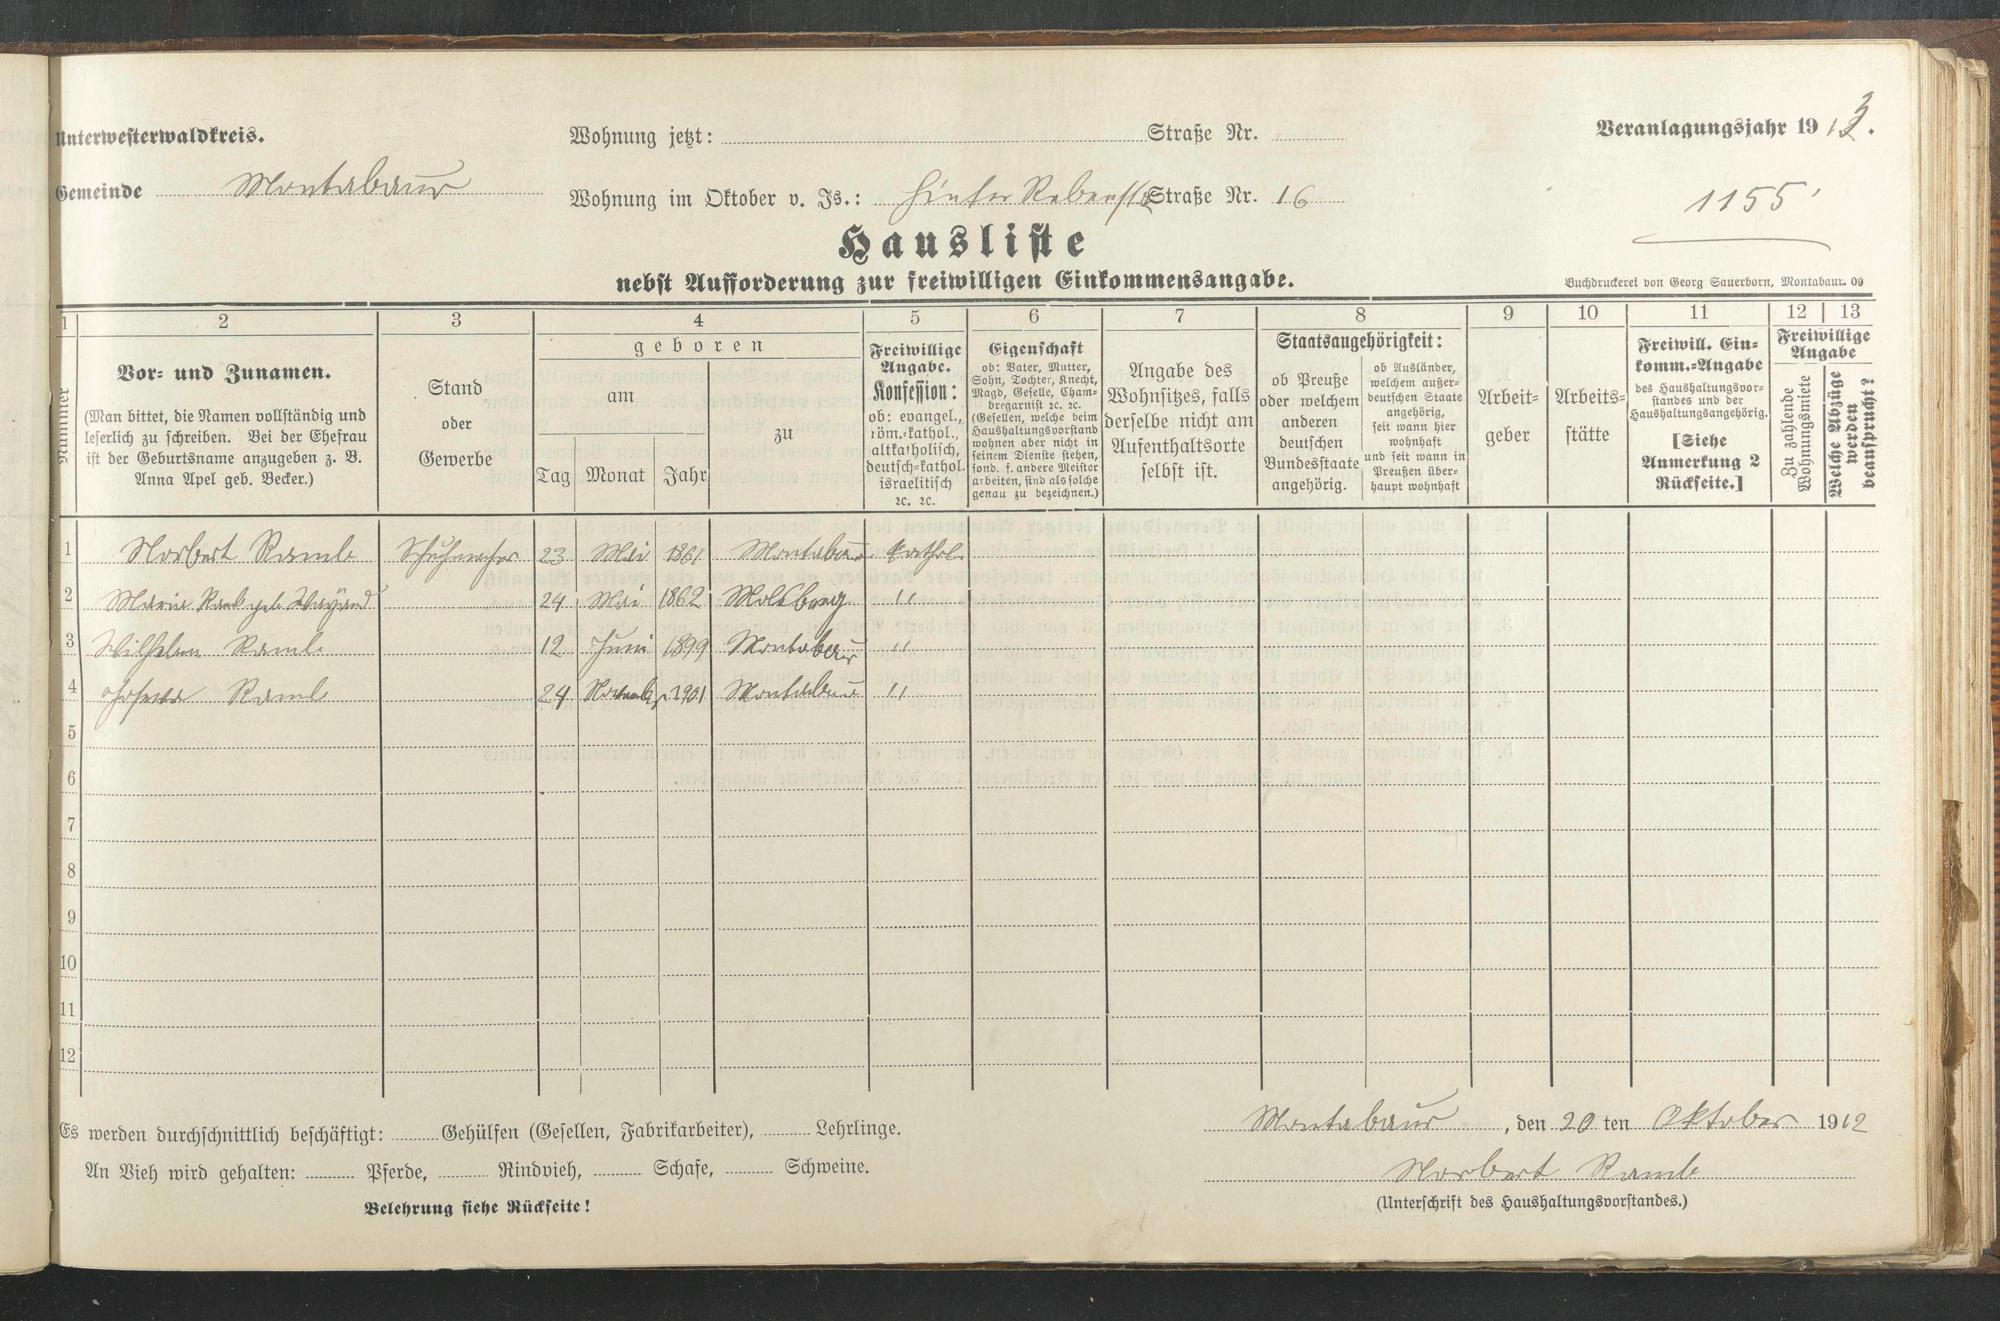 Unterwesterwaldkreis.
Wohnung jetzt: Straße Nr.
Veranlagungsjahr 1913.
Gemeinde Montabaur
Wohnung im Oktober v. Js.: Hinter Rebenstk Straße Nr. 16
1155
Hausliste
nebst Aufforderung zur freiwilligen Einkommensangabe.
Buchdruckerei von Georg Sauerborn, Montabaur. 09
1 2 3 4 5 6 7 8 9 10 11 12 13
Nummer
Vor- und Zunamen.
(Man bittet, die Namen vollständig und
leserlich zu schreiben. Bei der Ehefrau
ist der Geburtsname anzugeben z. B.
Anna Apel geb. Becker.)
Stand
oder
Gewerbe
geboren
am
Tag Monat Jahr
zu
Freiwillige
Angabe.
Konfession:
ob: evangel.,
röm.-kathol.,
altkatholisch,
deutsch-kathol.
israelitisch
ꝛc. ꝛc.
Eigenschaft
ob: Vater, Mutter,
Sohn, Tochter, Knecht,
Magd, Geselle, Cham-
bregarnist ꝛc. ꝛc.
(Gesellen, welche beim
Haushaltungsvorstand
wohnen aber nicht in
seinem Dienste stehen,
sond. f. andere Meister
arbeiten, sind als solche
genau zu bezeichnen.)
Angabe des
Wohnsitzes, falls
derselbe nicht am
Aufenthaltsorte
selbst ist.
Staatsangehörigkeit:
ob Preuße
oder welchem
anderen
deutschen
Bundesstaate
angehörig.
ob Ausländer,
welchem außer-
deutschen Staate
angehörig,
seit wann hier
wohnhaft
und seit wann in
Preußen über-
haupt wohnhaft
Arbeit-
geber
Arbeits-
stätte
Freiwill. Ein-
komm.-Angabe
des Haushaltungsvor-
standes und der
Haushaltungsangehörig.
[Siehe
Anmerkung 2
Rückseite.]
Freiwillige
Angabe
Zu zahlende
Wohnungsmiete
Welche Abzüge
werden
beansprucht?
1 Norbert Raml Schuhmacher 23 Mai 1861 Montabaur kathol.
2 Maria Raml geb. Wayand 24 Mai 1862 Molsberg "
3 Wilhelm Raml 12 Juni 1899 Montabaur "
4 Raml 24 Novemb. 1901 Montabaur "
5
6
7
8
9
10
11
12
Es werden durchschnittlich beschäftigt: Gehülfen (Gesellen, Fabrikarbeiter), Lehrlinge.
An Vieh wird gehalten: Pferde, Rindvieh, Schafe, Schweine.
Belehrung siehe Rückseite!
Montabaur, den 20 ten Oktober 1912
Norbert Raml
(Unterschrift des Haushaltungsvorstandes.)